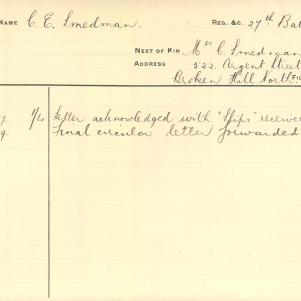 NAME C. E. Smedman. REG. &C. 27th Bat
NEXT OF KIN Mrs C. Smedman
ADDRESS 522. Argent Street
Broken Hill North
7. 11/20 Letter acknowledged with "Slips" received
9. Final circular letter forwarded